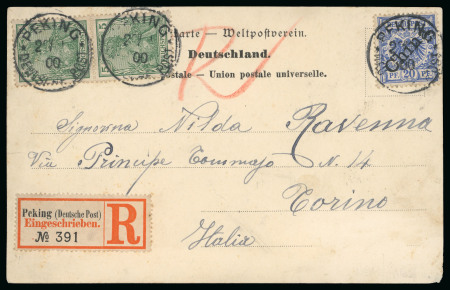 PEKING
PEKING
PEKING
00
00
China
karte – Weltpostverein.
Deutschland.
postale – Union postale universelle.
PF 20 PF
R
Signorina Nilda Ravenna
Via Principe Tommaso N. 14
Torino
Italia
Peking (Deutsche Post)
Eingeschrieben.
№ 391
R